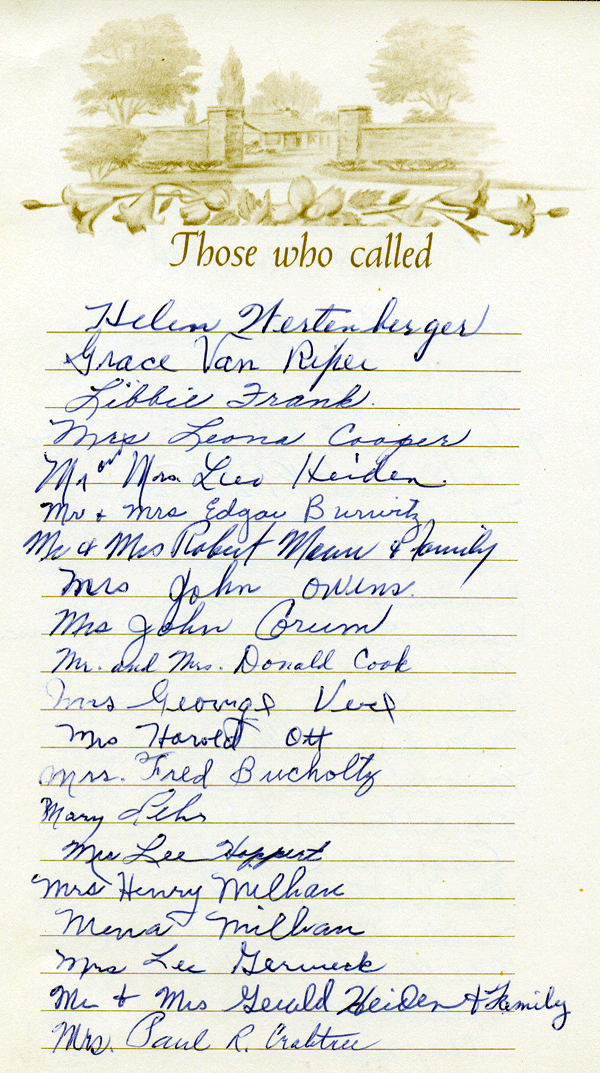 Those who called
Helen Wertenberger
Grace Van Riper
Libbie Frank.
Mrs Leona Cooper
Mr and Mrs. Leo Heiden.
Mr & Mrs Edgar Burwitz
Mr & Mrs Robert & family
Mrs John Owens.
Mrs John Corum
Mr. and Mrs. Donald Cook
Mrs George
Mrs Harold Ott
Mrs. Fred Bucholtz
Mary
Mrs Lee Hoppert
Mrs Henry Milhan
Milhan
Mrs Lee Gerweck
Mr & Mrs Gerald Heiden & Family
Mrs. Paul R. Crabtree